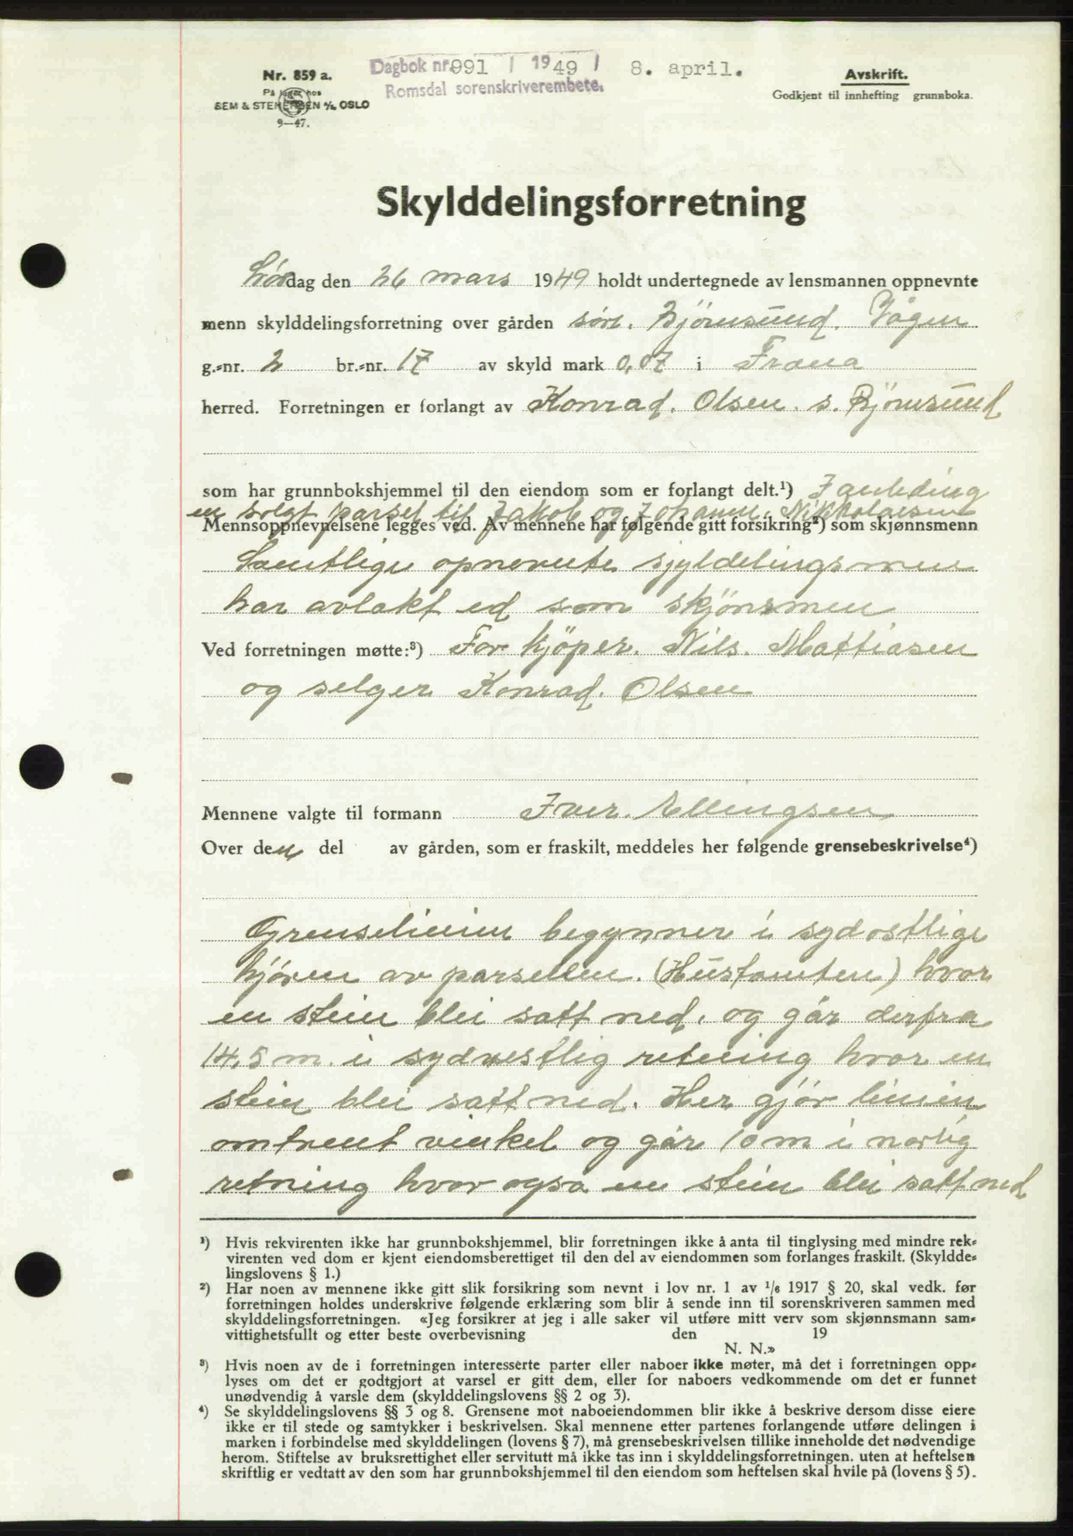 Nr. 859 a.
På lager hos
SEM & STENERSEN A/S OSLO
9—47.
Dagbok nr. 991 / 1949 / 8. april.
Romsdal sorenskriverembete.
Avskrift.
Godkjent til innhefting grunnboka.
Skylddelingsforretning
Lørdag den 26 mars 1949 holdt undertegnede av lensmannen oppnevnte
menn skylddelingsforretning over gården søn. Bjørnsund. Vågen
g.-nr. 2 br.-nr. 17 av skyld mark 0,07 i Fræna
herred. Forretningen er forlangt av Konrad. Olsen. s. Bjørnsund
som har grunnbokshjemmel til den eiendom som er forlangt delt.¹) I anleding
en solgt parsel til Jakob og Johann. Nikkolaisen
Mennsoppnevnelsene legges ved. Av mennene har følgende gitt forsikring²) som skjønnsmenn
Samtlige opnevnte sjyldelingsmen
har avlakt ed som skjønsmen
Ved forretningen møtte:³) For kjöper. Nils. Mattiasen
og selger Konrad. Olsen
Mennene valgte til formann Iver. Ellingsen
Over den del av gården, som er fraskilt, meddeles her følgende grensebeskrivelse⁴)
Grenselinien begynner i sydostlige
hjören av parsellen. (Hustomten) hvor
en stein blei satt ned. og går derfra
14,5 m. i sydvestlig retning hvor en
stein blei satt ned. Her gjör linien
omtrent vinkel og går 10 m i norlig
retning hvor også en stein blei satt ned
¹) Hvis rekvirenten ikke har grunnbokshjemmel, blir forretningen ikke å anta til tinglysing med mindre rek-
virenten ved dom er kjent eiendomsberettiget til den del av eiendommen som forlanges fraskilt. (Skyldde-
lingslovens § 1.)
²) Har noen av mennene ikke gitt slik forsikring som nevnt i lov nr. 1 av 1/6 1917 § 20, skal vedk. før
forretningen holdes underskrive følgende erklæring som blir å sende inn til sorenskriveren sammen med
skylddelingsforretningen. «Jeg forsikrer at jeg i alle saker vil utføre mitt verv som skjønnsmann sam-
vittighetsfullt og etter beste overbevisning den 19
N. N.»
³) Hvis noen av de i forretningen interesserte parter eller naboer ikke møter, må det i forretningen opp-
lyses om det er godtgjort at varsel er gitt dem, eller for naboers vedkommende om det er funnet
unødvendig å varsle dem (skylddelingslovens §§ 2 og 3).
⁴) Se skylddelingslovens §§ 3 og 8. Grensene mot naboeiendommen blir ikke å beskrive dersom disse eiere
ikke er til stede og samtykker i beskrivelsen. Skal mennene etter partenes forlangende utføre delingen i
marken i forbindelse med skylddelingen (lovens § 7), må grensebeskrivelsen tillike inneholde det nødvendige
herom. Stiftelse av bruksrettighet eller servitutt må ikke tas inn i skylddelingsforretningen. uten at heftelsen
skriftlig er vedtatt av den som har grunnbokshjemmel til den eiendom som heftelsen skal hvile på (lovens § 5).